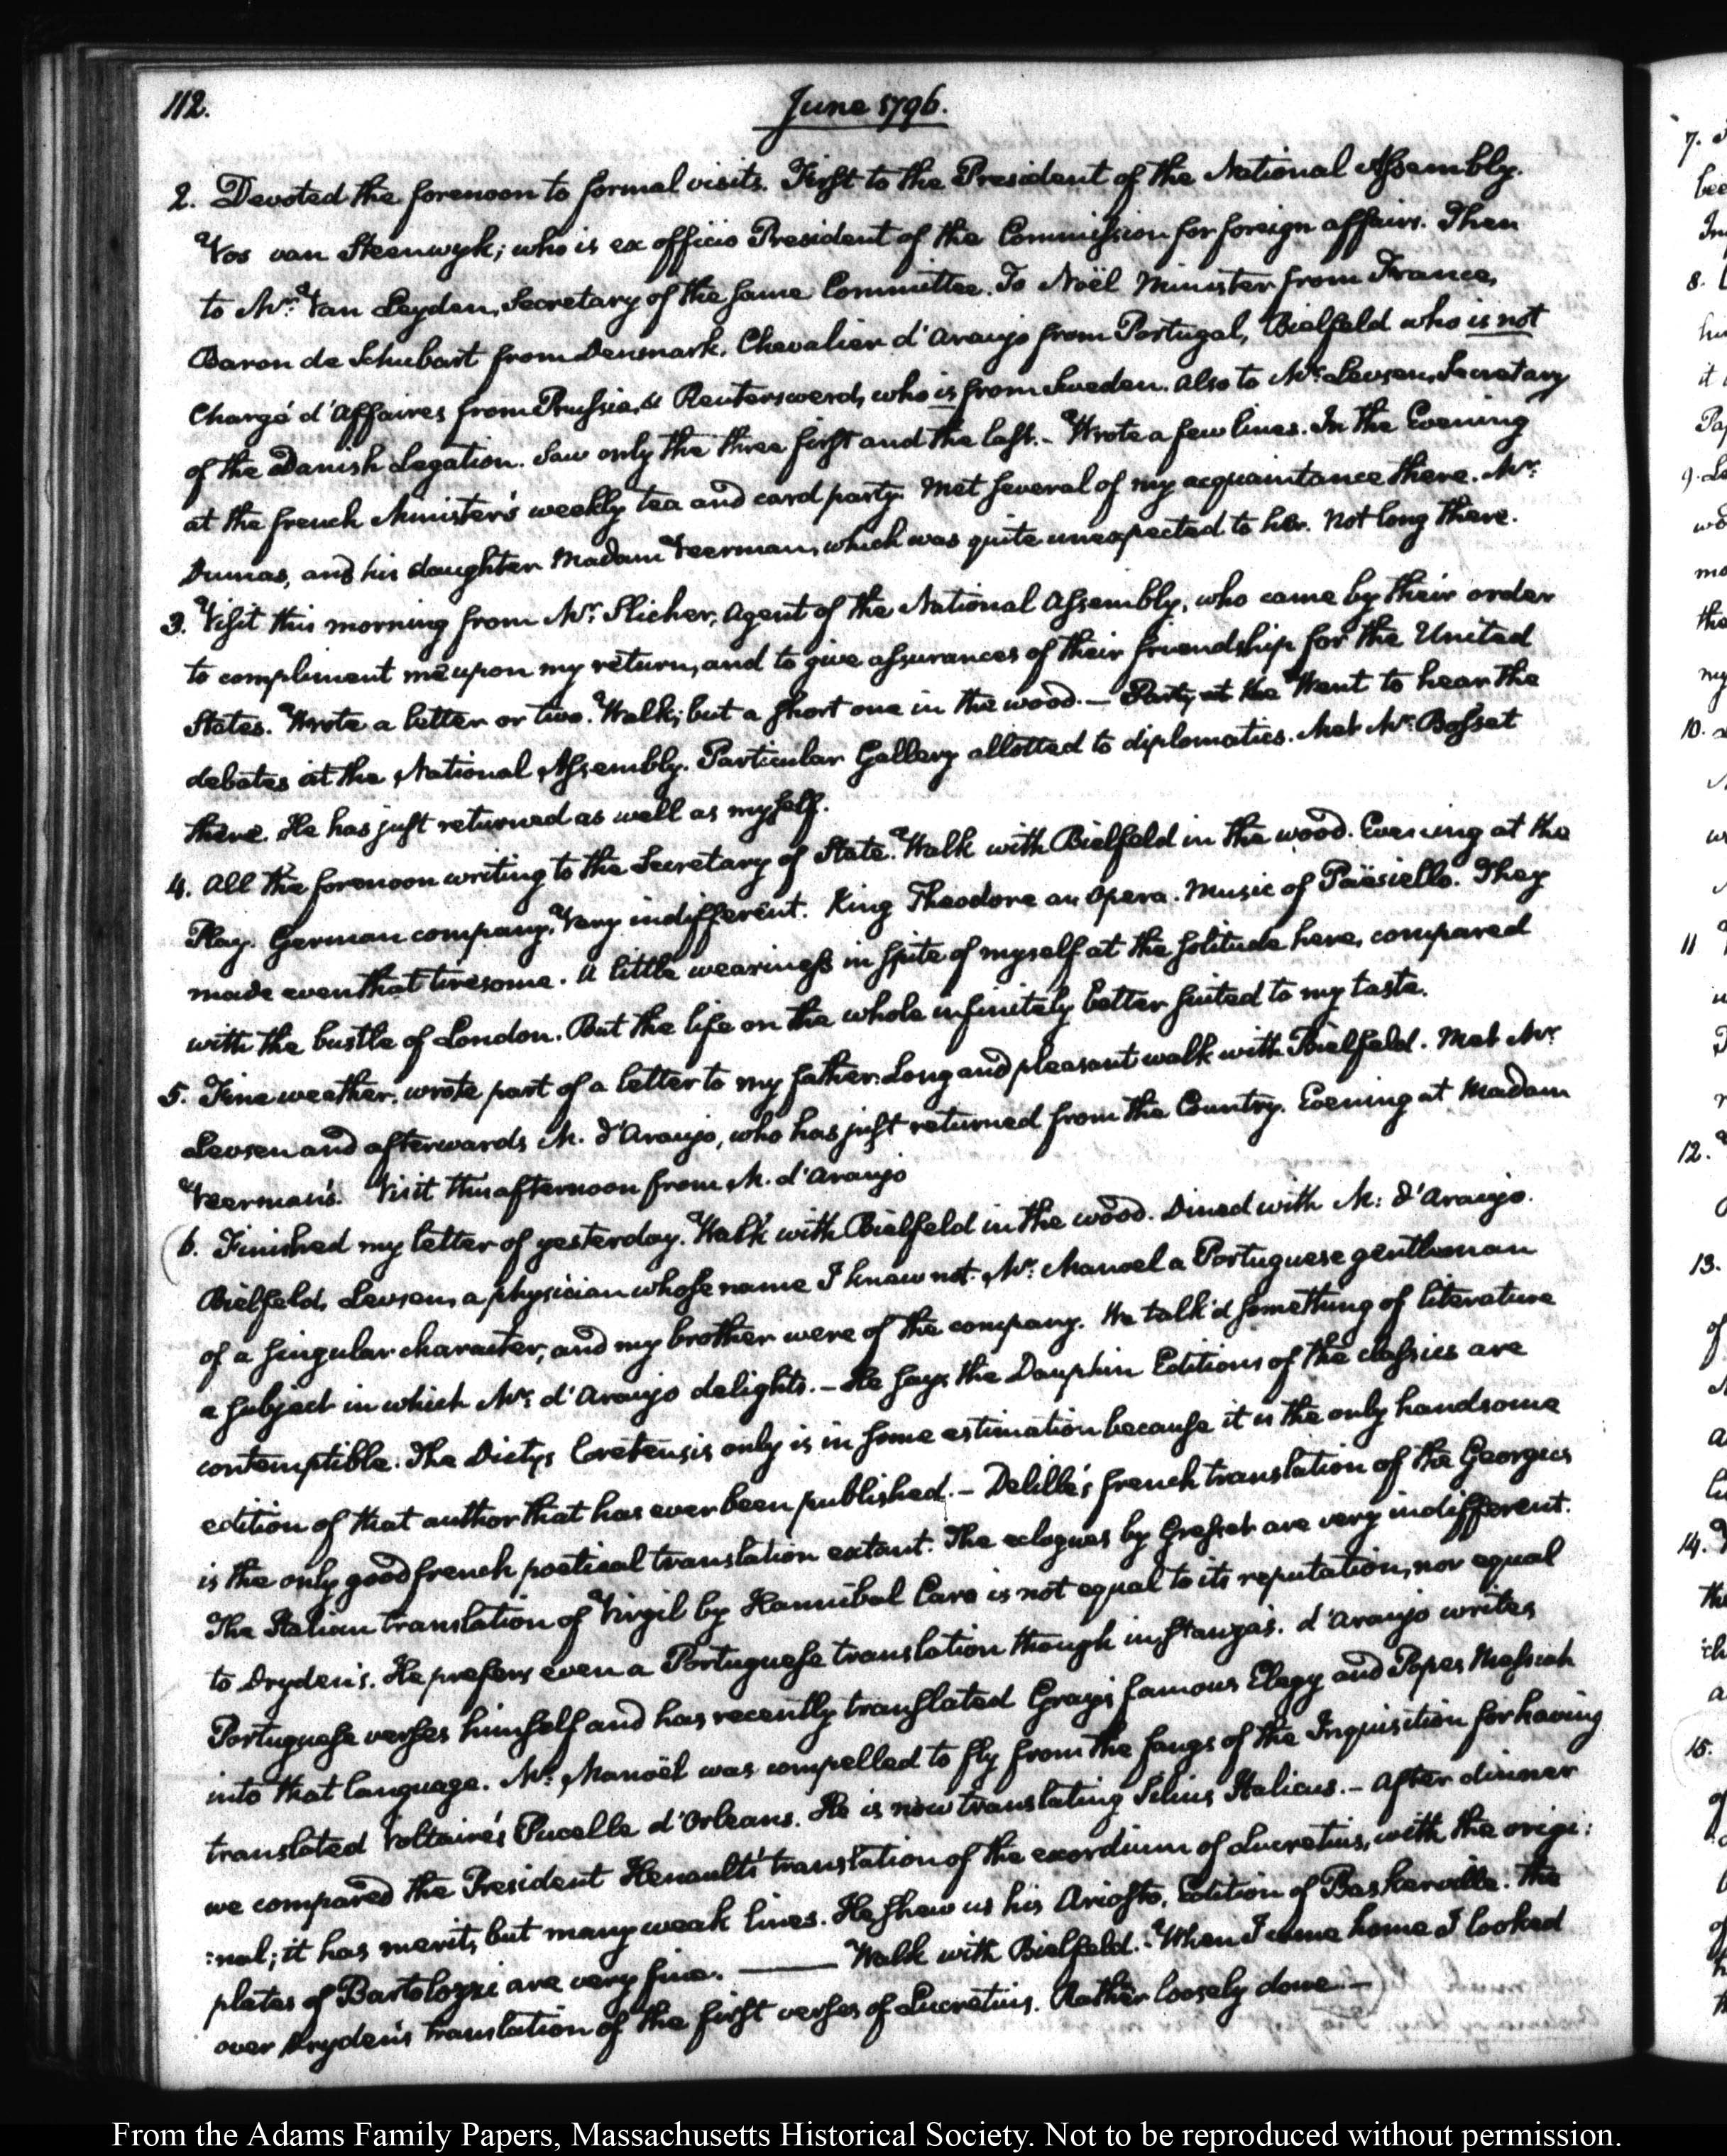 112.
June 1796.
2. Devoted the forenoon to formal visits. First to the President of the National Assembly.
Vos van Steenwyk; who is ex officio President of the Commission for foreign affairs. Then
to Mr: Van Leyden, Secretary of the same Committee. To Noël Minister from France,
Baron de Schubart from Denmark, Chevalier d'Araujo from Portugal, Bielfeld who is not
Chargé d'Affaires from Prussia, & Reuterswerd, who is from Sweden. Also to Mr: Levsen, Secretary
of the Danish Legation. Saw only the three first and the last. - Wrote a few lines. In the Evening
at the french Minister's weekly tea and card party. Met several of my acquaintance there. Mr:
Dumas, and his daughter Madam Veerman, which was quite unexpected to her. Not long there.
3. Visit this morning from Mr: Slicher, Agent of the National Assembly, who came by their order
to compliment me upon my return, and to give assurances of their friendship for the United
States. Wrote a letter or two. Walk; but a short one in the wood. — Party at the Went to hear the
debates at the National Assembly. Particular Gallery allotted to diplomatics. Met Mr: Bosset
there. He has just returned as well as myself.
4. All the forenoon writing to the Secretary of State. Walk with Bielfeld in the wood. Evening at the
Play. German company. Very indifferent. King Theodore an Opera. Music of Paësiello. They
made even that tiresome. A little weariness in spite of myself at the solitude here, compared
with the bustle of London. But the life on the whole infinitely better suited to my taste.
5. Fine weather. wrote part of a letter to my father. Long and pleasant walk with Bielfeld. Met Mr:
Levsen and afterwards M. d'Araujo, who has just returned from the Country. Evening at Madam
Veerman's. Visit this afternoon from M. d'Araujo
6. Finished my letter of yesterday. Walk with Bielfeld in the wood. Dined with M: d'Araujo.
Bielfeld, Levsen, a physician whose name I knew not. Mr: Manoel a Portuguese gentleman
of a singular character, and my brother were of the company. We talk'd something of literature
a subject in which Mr: d'Araujo delights. - He says the Dauphin Editions of the classics are
contemptible. The Dictys Cretensis only is in some estimation because it is the only handsome
edition of that author that has ever been published. - Delille's french translation of the Georgics
is the only good french poetical translation extant. The eclogues by Gresset are very indifferent.
The Italian translation of Virgil by Hannibal Caro is not equal to its reputation, nor equal
to Dryden's. He prefers even a Portuguese translation though in stanzas. d'Araujo writes
Portuguese verses himself and has recently translated Gray's famous Elegy and Popes Messiah
into that language. Mr: Manoël was compelled to fly from the fangs of the Inquisition for having
translated Voltaire's Pucelle d'Orleans. He is now translating Silius Italicus. - After dinner
we compared the President Henault's translation of the exordium of Lucretius, with the origi:
:nal; it has merit, but many weak lines. He shew us his Ariosto. Edition of Baskerville. the
plates of Bartolozzi are very fine. —— Walk with Bielfeld. - When I came home I looked
over Dryden's translation of the first verses of Lucretius. Rather loosely done —
7.
8.
9.
10.
11
12.
13.
14.
15.
From the Adams Family Papers, Massachusetts Historical Society. Not to be reproduced without permission.